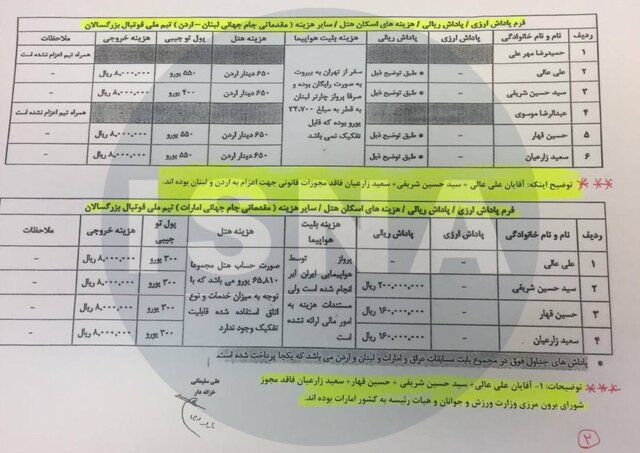 فرم پاداش ارزی / پاداش ریالی / هزینه های اسکان هتل / سایر هزینه ( مقدماتی جام جهانی لبنان – اردن ) تیم ملی فوتبال بزرگسالان
ردیف نام و نام خانوادگی پاداش ارزی پاداش ریالی هزینه بلیت هواپیما هزینه هتل پول تو جیبی هزینه خروجی ملاحظات
۱ حمیدرضا مهر علی همراه تیم اعزام نشده است
سفر از تهران به بیروت به صورت رایگان بوده و صرفا پرواز چارتر لبنان به قطر به مبلغ ۳۴.۷۰۰ یورو بوده که قابل تفکیک نمی باشد
۲ علی عالی – * طبق توضیح ذیل ۶۵۰ دینار اردن ۵۵۰ یورو ۸,۰۰۰,۰۰۰ ریال –
۳ سید حسین شریفی – * طبق توضیح ذیل ۶۵۰ دینار اردن ۴۰۰ یورو ۸,۰۰۰,۰۰۰ ریال –
۴ عبدالرضا موسوی همراه تیم اعزام نشده است
۵ حسین قهار – * طبق توضیح ذیل ۶۵۰ دینار اردن ۵۵۰ یورو ۸,۰۰۰,۰۰۰ ریال –
۶ سعید زارعیان – * طبق توضیح ذیل ۶۵۰ دینار اردن ۵۵۰ یورو ۸,۰۰۰,۰۰۰ ریال –
*** توضیح اینکه: آقایان علی عالی + سید حسین شریفی+ سعید زارعیان فاقد مجوزات قانونی جهت اعزام به اردن و لبنان بوده اند.
فرم پاداش ارزی / پاداش ریالی / هزینه های اسکان هتل / سایر هزینه ( مقدماتی جام جهانی امارات ) تیم ملی فوتبال بزرگسالان
ردیف نام و نام خانوادگی پاداش ارزی پاداش ریالی هزینه بلیت هواپیما هزینه هتل پول تو جیبی هزینه خروجی ملاحظات
پرواز توسط هواپیمایی ایران ایر انجام شده است ولی مستندات هزینه به امور مالی ارائه نشده است
صورت حساب هتل مجموعا ۶۵,۸۱۰ یورو می باشد که با توجه به میزان خدمات و نوع اتاق استفاده شده قابلیت تفکیک وجود ندارد
۱ علی عالی – – ۳۰۰ یورو ۸,۰۰۰,۰۰۰ ریال –
۲ سید حسین شریفی – ۲۰۰,۰۰۰,۰۰۰ ریال ۳۰۰ یورو ۸,۰۰۰,۰۰۰ ریال –
۳ حسین قهار – ۱۶۰,۰۰۰,۰۰۰ ریال ۳۰۰ یورو ۸,۰۰۰,۰۰۰ ریال –
۴ سعید زارعیان – ۱۶۰,۰۰۰,۰۰۰ ریال ۳۰۰ یورو ۸,۰۰۰,۰۰۰ ریال –
• پاداش های جداول فوق در مجموع بابت مسابقات عراق و امارات و لبنان و اردن می باشد که یکجا پرداخت شده است.
*** توضیحات: ۱- آقایان علی عالی + سید حسین شریفی + حسین قهار+ سعید زارعیان فاقد مجوز
شورای برون مرزی وزارت ورزش و جوانان و هیات رئیسه به کشور امارات بوده اند.
علی سلیمانی
خزانه دار
۲
ISNA